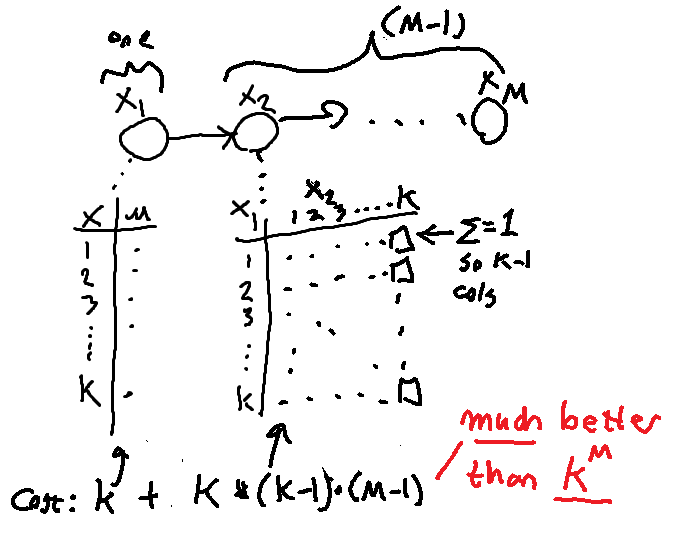 one
(M-1)
X1
X2
XM
. . .
X μ
1
2
3
K
X2
X1 1 2 3 ..... K
1
2
3
K
Σ=1
so K-1
cols
Cost: K + K * (K-1)·(M-1)
much better
than K^M